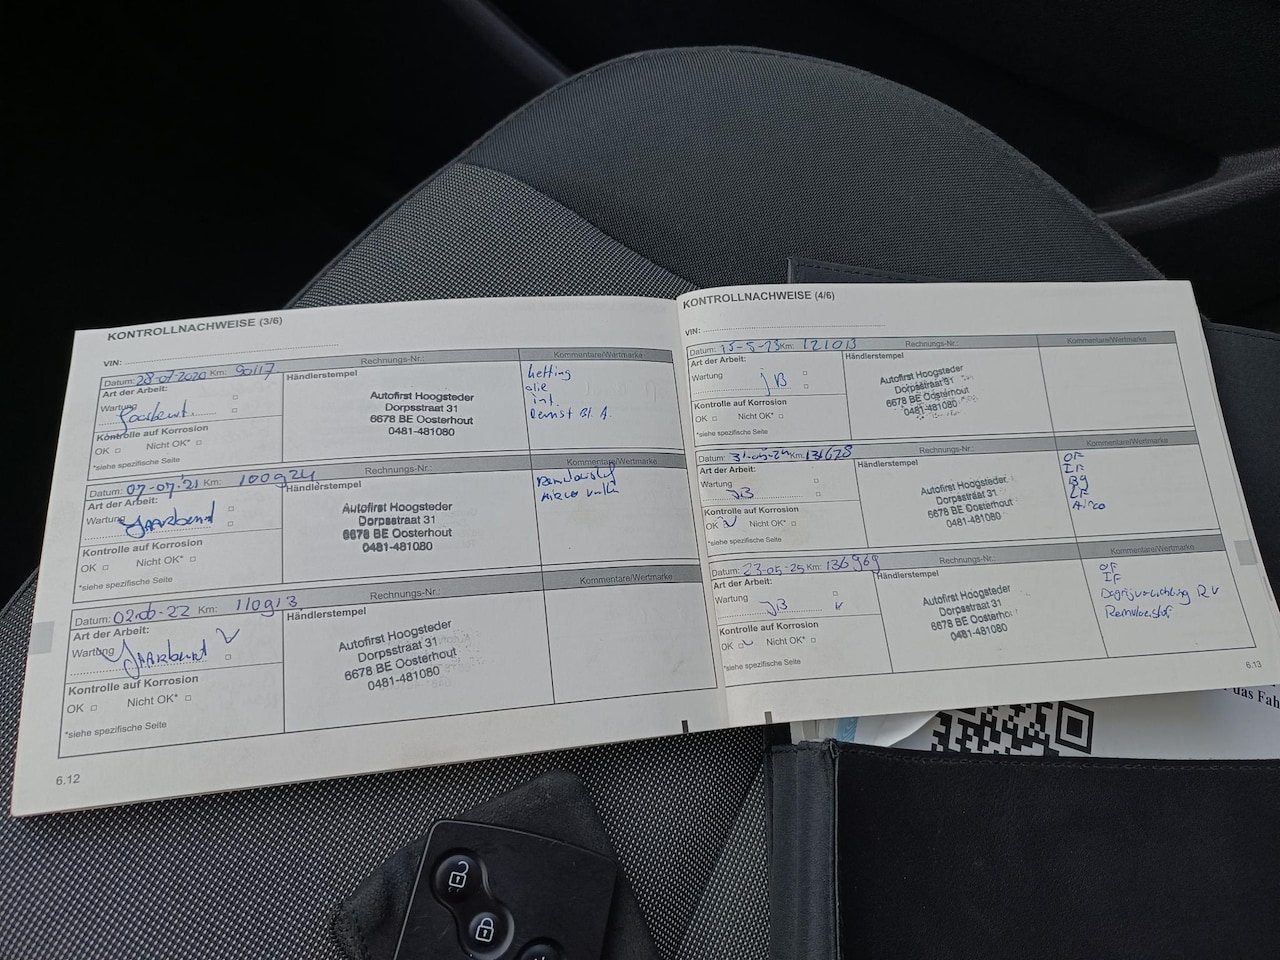 KONTROLLNACHWEISE (3/6)
VIN:
Datum: 28-07-2020 Km: 90117 Rechnungs-Nr.: Kommentare/Wertmarke
Art der Arbeit: Händlerstempel
Wartung
Autofirst Hoogsteder
Dorpsstraat 31
6678 BE Oosterhout
0481-481080
ketting
olie
int.
Remst Bl. A.
Kontrolle auf Korrosion
OK Nicht OK*
*siehe spezifische Seite
Datum: 07-07-'21 Km: 100924 Rechnungs-Nr.: Kommentare/Wertmarke
Art der Arbeit: Händlerstempel
Wartung Jaarbeurt
Autofirst Hoogsteder
Dorpsstraat 31
6678 BE Oosterhout
0481-481080
Kontrolle auf Korrosion
OK Nicht OK*
*siehe spezifische Seite
Datum: 02-06-22 Km: 110913 Rechnungs-Nr.: Kommentare/Wertmarke
Art der Arbeit: Händlerstempel
Wartung Jaarbeurt
Autofirst Hoogsteder
Dorpsstraat 31
6678 BE Oosterhout
0481-481080
Kontrolle auf Korrosion
OK Nicht OK*
*siehe spezifische Seite
6.12
KONTROLLNACHWEISE (4/6)
VIN:
Datum: 15-5-23 Km: 121013 Rechnungs-Nr.: Kommentare/Wertmarke
Art der Arbeit: Händlerstempel
Wartung JB
Autofirst Hoogsteder
Dorpsstraat 31
6678 BE Oosterhout
0481-481080
Kontrolle auf Korrosion
OK Nicht OK*
*siehe spezifische Seite
Datum: 31-05-24 Km: 131628 Rechnungs-Nr.: Kommentare/Wertmarke
Art der Arbeit: Händlerstempel
Wartung JB
Autofirst Hoogsteder
Dorpsstraat 31
6678 BE Oosterhout
0481-481080
OF
IF
Bg
LF
Airco
Kontrolle auf Korrosion
OK Nicht OK*
*siehe spezifische Seite
Datum: 23-05-25 Km: 136969 Rechnungs-Nr.: Kommentare/Wertmarke
Art der Arbeit: Händlerstempel
Wartung JB
Autofirst Hoogsteder
Dorpsstraat 31
6678 BE Oosterhout
0481-481080
OF
IF
Dagrijverlichting RV
Remvloeistof
Kontrolle auf Korrosion
OK Nicht OK*
*siehe spezifische Seite
6.13
das Fah